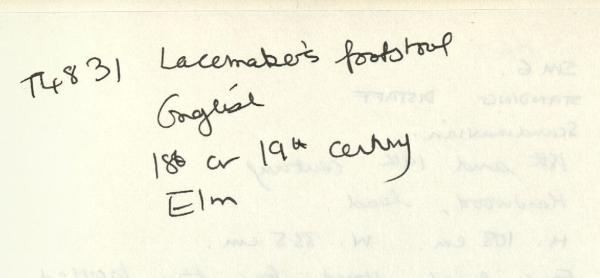 T4831 Lacemaker's footstool
English
18th or 19th century
Elm